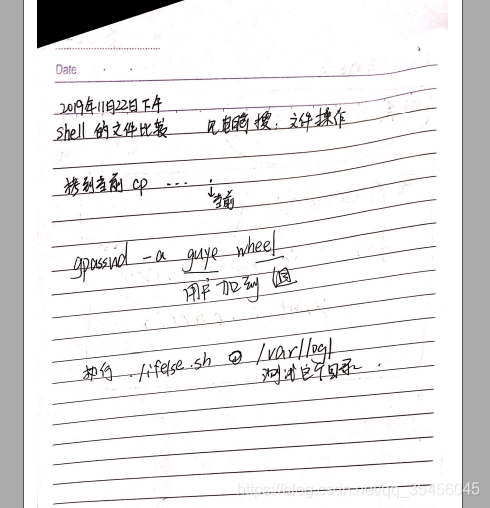 Date
2019年11月22日下午
shell 的文件比较 搜: 文件操作
拷到当前 cp ... .
当前
gpasswd -a guye wheel
用户 加到
执行 ./ifelse.sh /var/log/
测试这个目录.
https://blog.csdn.net/qq_35456045